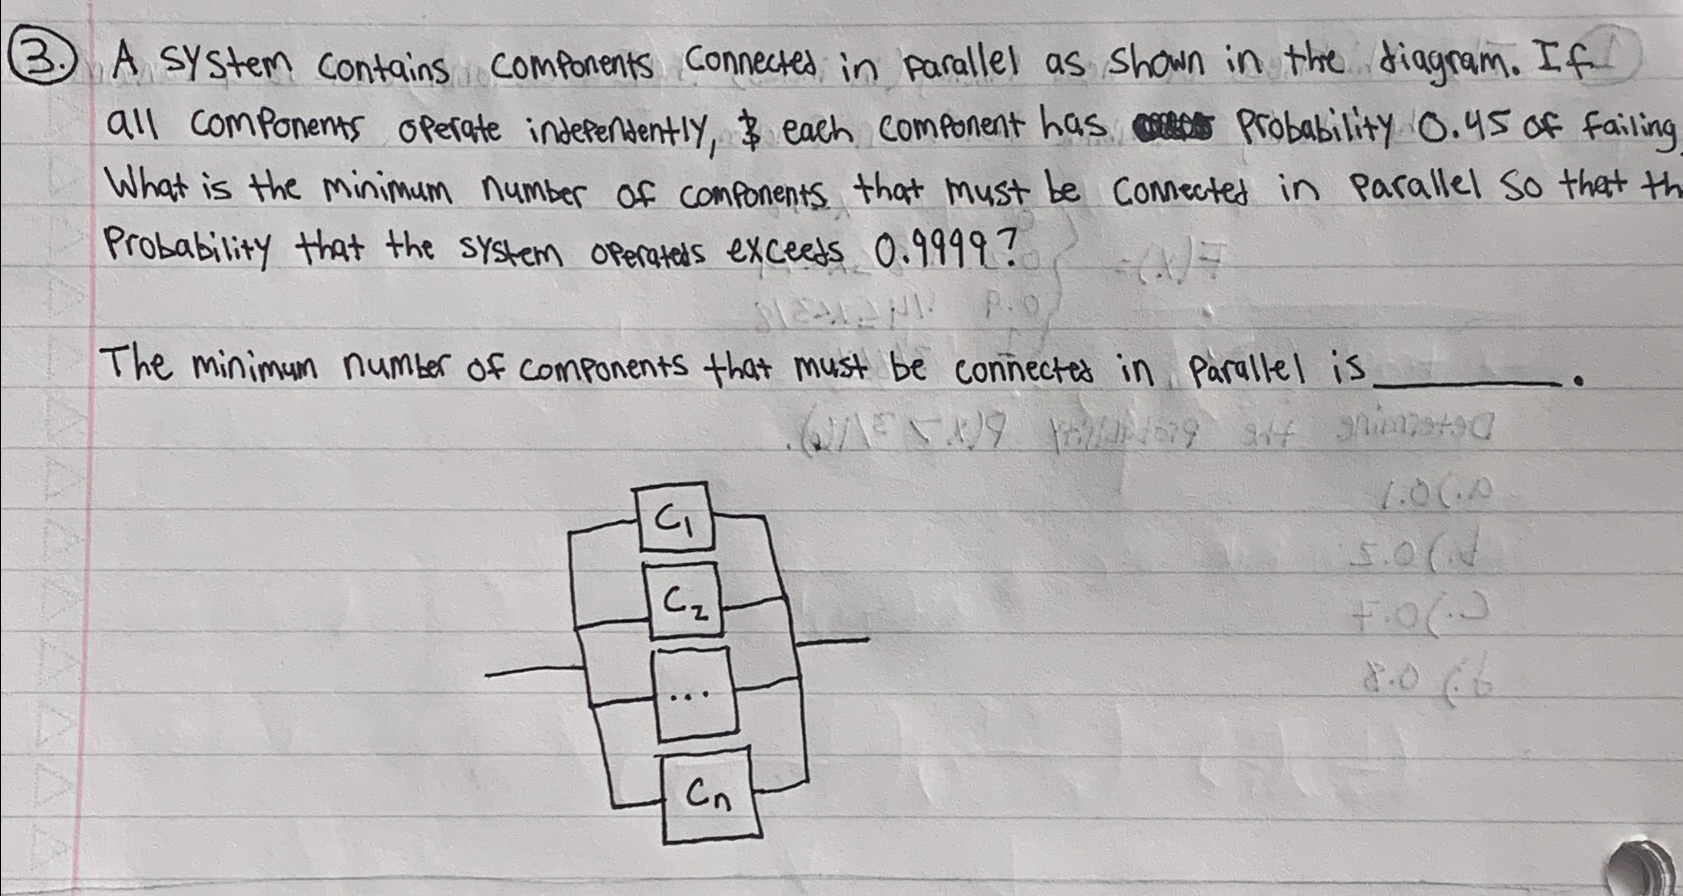 3. A system contains components connected in parallel as shown in the diagram. If
all components operate independently, & each component has probability 0.45 of failing.
What is the minimum number of components that must be connected in parallel so that th
probability that the system operates exceeds 0.9999?
The minimum number of components that must be connected in parallel is ________.
F(x)=
0.9
Determine the probability
a.) 0.1
b.) 0.2
c.) 0.7
d.) 0.8
C1
C2
...
Cn